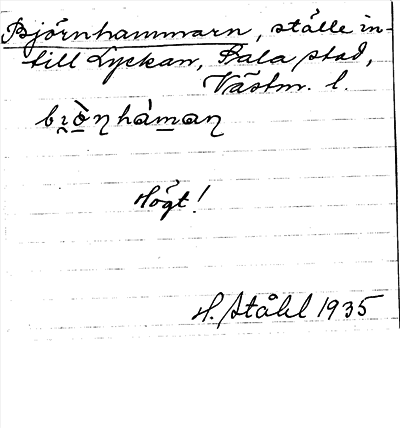 Björnhammarn, ställe in-
till Lyckan, Sala stad,
Västm. l.
bi̯ὸ̠ƞ hàma̠ƞ
Högt!
H. Ståhl 1935